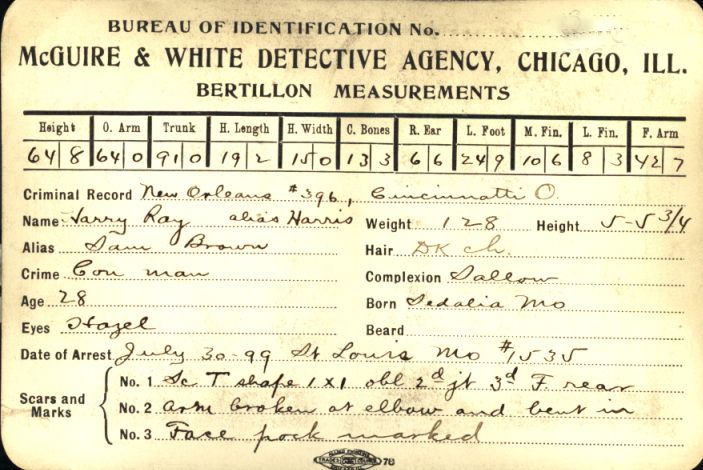 BUREAU OF IDENTIFICATION No.
McGUIRE & WHITE DETECTIVE AGENCY, CHICAGO, ILL.
BERTILLON MEASUREMENTS
Height O. Arm Trunk H. Length H. Width C. Bones R. Ear L. Foot M. Fin. L. Fin. F. Arm
64 8 64 0 91 0 19 2 15 0 13 3 6 6 24 9 10 6 8 3 42 7
Criminal Record New Orleans #396, Cincinnatti O.
Name Harry Ray alias Harris Weight 128 Height 5-5 3/4
Alias Sam Brown Hair DK ch.
Crime Con man Complexion Sallow
Age 28 Born Sedalia Mo
Eyes Hazel Beard
Date of Arrest July 30-99 St Louis Mo #1535
Scars and Marks
No. 1 Sc T shape 1x1 obl 2d jt 3d F. rear
No. 2 Arm broken at elbow and bent in
No. 3 Face pock marked
76